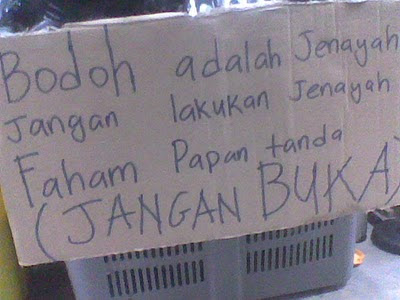 Bodoh adalah Jenayah
Jangan lakukan Jenayah
Faham Papan tanda
(JANGAN BUKA)